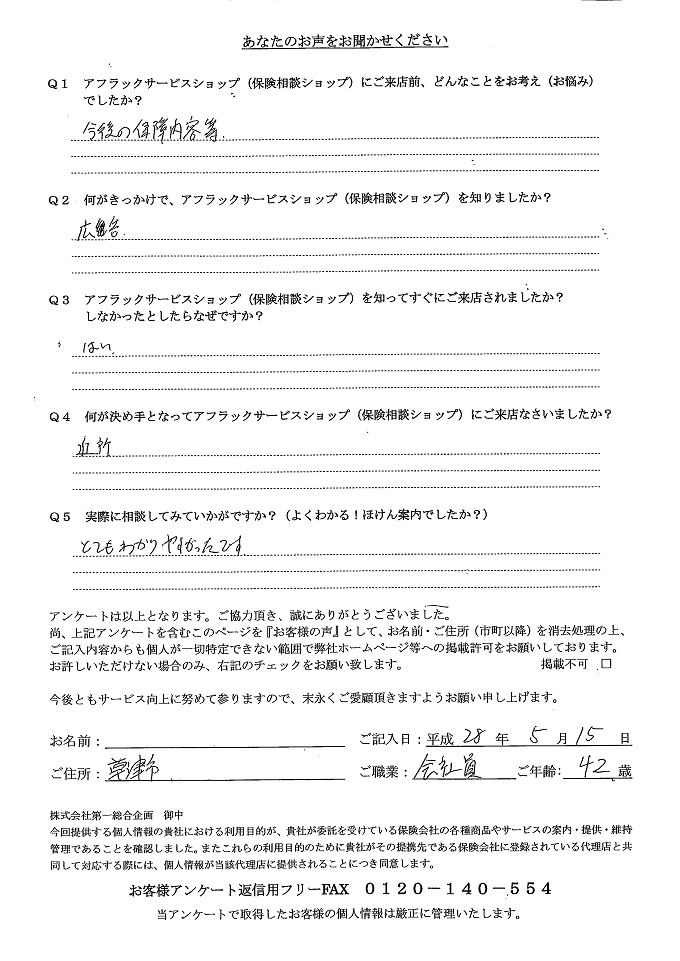 あなたのお声をお聞かせください
Q1 アフラックサービスショップ（保険相談ショップ）にご来店前、どんなことをお考え（お悩み）
でしたか？
今後の保障内容等.
Q2 何がきっかけで、アフラックサービスショップ（保険相談ショップ）を知りましたか？
広告.
Q3 アフラックサービスショップ（保険相談ショップ）を知ってすぐにご来店されましたか？
しなかったとしたらなぜですか？
はい.
Q4 何が決め手となってアフラックサービスショップ（保険相談ショップ）にご来店なさいましたか？
近所
Q5 実際に相談してみていかがですか？（よくわかる！ほけん案内でしたか？）
とてもわかりやすかったです
アンケートは以上となります。ご協力頂き、誠にありがとうございました。
尚、上記アンケートを含むこのページを『お客様の声』として、お名前・ご住所（市町以降）を消去処理の上、
ご記入内容からも個人が一切特定できない範囲で弊社ホームページ等への掲載許可をお願いしております。
お許しいただけない場合のみ、右記のチェックをお願い致します。 掲載不可 □
今後ともサービス向上に努めて参りますので、末永くご愛顧頂きますようお願い申し上げます。
お名前： ご記入日：平成 28 年 5 月 15 日
ご住所：草津市 ご職業：会社員 ご年齢：42 歳
株式会社第一総合企画 御中
今回提供する個人情報の貴社における利用目的が、貴社が委託を受けている保険会社の各種商品やサービスの案内・提供・維持
管理であることを確認しました。またこれらの利用目的のために貴社がその提携先である保険会社に登録されている代理店と共
同して対応する際には、個人情報が当該代理店に提供されることにつき同意します。
お客様アンケート返信用フリーFAX 0120－140－554
当アンケートで取得したお客様の個人情報は厳正に管理いたします。